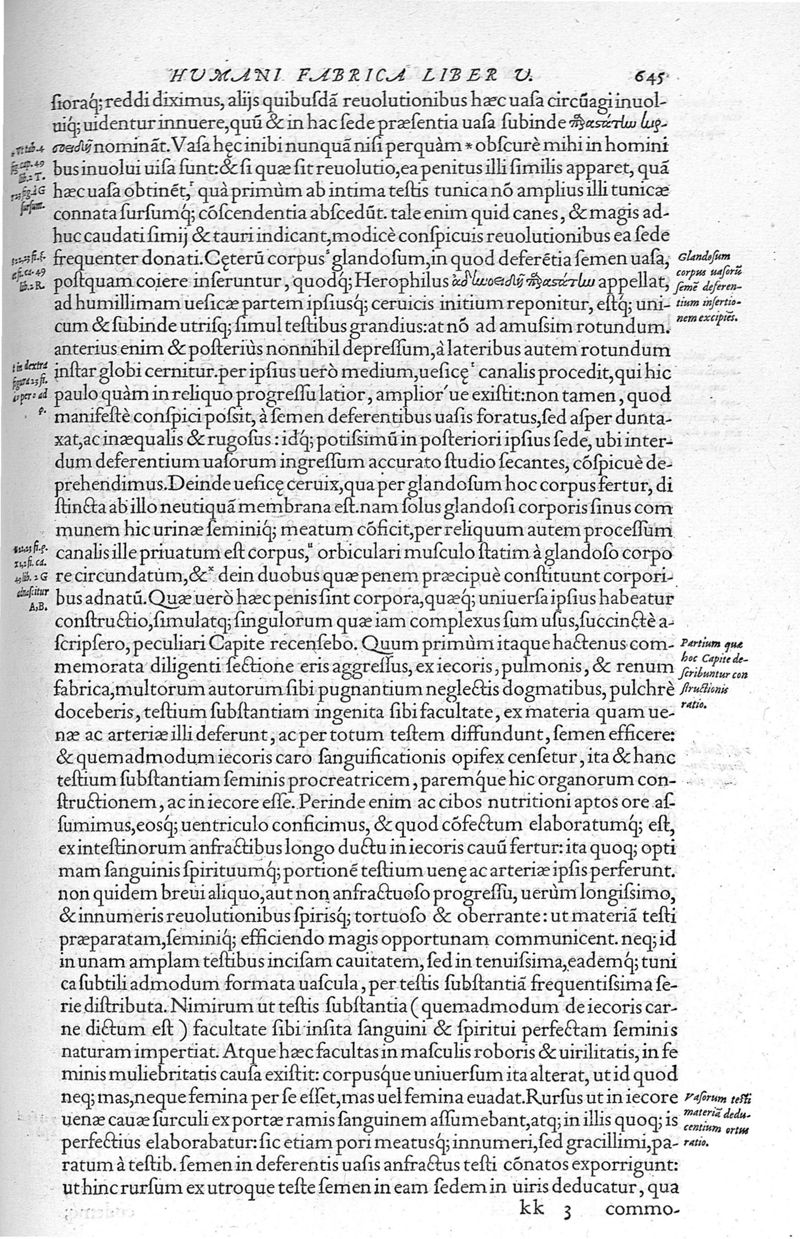 HUMANI FABRICA LIBER V. 645
ſioraq; reddi diximus, alijs quibuſdā reuolutionibus hæc uaſa circūagi inuol-
uiq; uidentur innuere, quū & in hac ſede præſentia uaſa ſubinde
nomināt. Vaſa hęc inibi nunquā niſi perquàm * obſcurè mihi in homini
bus inuolui uiſa ſunt: & ſi quæ ſit reuolutio, ea penitus illi ſimilis apparet, quā
hæc uaſa obtinēt, quà primùm ab intima teſtis tunica nō amplius illi tunicæ
connata ſurſumq; cōſcendentia abſcedūt. tale enim quid canes, & magis ad-
huc caudati ſimij & tauri indicant, modicè conſpicuis reuolutionibus ea ſede
frequenter donati. Cęterū corpus glandoſum, in quod deferētia ſemen uaſa,
poſtquam coiere inferuntur, quodq; Herophilus appellat,
ad humillimam ueſicæ partem ipſiusq; ceruicis initium reponitur, eſtq; uni-
cum & ſubinde utriſq; ſimul teſtibus grandius: at nō ad amuſsim rotundum.
anterius enim & poſteriùs nonnihil depreſſum, à lateribus autem rotundum
inſtar globi cernitur. per ipſius uerò medium, ueſicę canalis procedit, qui hic
paulo quàm in reliquo progreſſu latior, amplior'ue exiſtit: non tamen, quod
manifeſtè conſpici poſsit, à ſemen deferentibus uaſis foratus, ſed aſper dunta-
xat, ac inæqualis & rugoſus: idq; potiſsimū in poſteriori ipſius ſede, ubi inter-
dum deferentium uaſorum ingreſſum accurato ſtudio ſecantes, cōſpicuè de-
prehendimus. Deinde ueſicę ceruix, qua per glandoſum hoc corpus fertur, di
ſtincta ab illo neutiquā membrana eſt. nam ſolus glandoſi corporis ſinus com
munem hic urinæ ſeminiq; meatum cōficit, per reliquum autem proceſſum
canalis ille priuatum eſt corpus, orbiculari muſculo ſtatim à glandoſo corpo
re circundatum, & dein duobus quæ penem præcipuè conſtituunt corpori-
bus adnatū. Quæ uerò hæc penis ſint corpora, quæq; uniuerſa ipſius habeatur
conſtructio, ſimulatq; ſingulorum quæ iam complexus ſum uſus, ſuccinctè a-
ſcripſero, peculiari Capite recenſebo. Quum primùm itaque hactenus com-
memorata diligenti ſectione eris aggreſſus, ex iecoris, pulmonis, & renum
fabrica, multorum autorum ſibi pugnantium neglectis dogmatibus, pulchrè
doceberis, teſtium ſubſtantiam ingenita ſibi facultate, ex materia quam ue-
næ ac arteriæ illi deferunt, ac per totum teſtem diffundunt, ſemen efficere:
& quemadmodum iecoris caro ſanguificationis opifex cenſetur, ita & hanc
teſtium ſubſtantiam ſeminis procreatricem, paremq́ue hic organorum con-
ſtructionem, ac in iecore eſſe. Perinde enim ac cibos nutritioni aptos ore aſ-
ſumimus, eosq; uentriculo conficimus, & quod cōfectum elaboratumq; eſt,
ex inteſtinorum anfractibus longo ductu in iecoris cauū fertur: ita quoq; opti
mam ſanguinis ſpirituumq; portionē teſtium uenę ac arteriæ ipſis perferunt.
non quidem breui aliquo, aut non anfractuoſo progreſſu, uerùm longiſsimo,
& innumeris reuolutionibus ſpirisq; tortuoſo & oberrante: ut materiā teſti
præparatam, ſeminiq; efficiendo magis opportunam communicent. neq; id
in unam amplam teſtibus inciſam cauitatem, ſed in tenuiſsima, eademq; tuni
ca ſubtili admodum formata uaſcula, per teſtis ſubſtantiā frequentiſsima ſe-
rie diſtributa. Nimirum ut teſtis ſubſtantia ( quemadmodum de iecoris car-
ne dictum eſt ) facultate ſibi inſita ſanguini & ſpiritui perfectam ſeminis
naturam impertiat. Atque hæc facultas in maſculis roboris & uirilitatis, in fe
minis muliebritatis cauſa exiſtit: corpusque uniuerſum ita alterat, ut id quod
neq; mas, neque femina per ſe eſſet, mas uel femina euadat. Rurſus ut in iecore
uenæ cauæ ſurculi ex portæ ramis ſanguinem aſſumebant, atq; in illis quoq; is
perfectius elaborabatur: ſic etiam pori meatusq; innumeri, ſed gracillimi, pa-
ratum à teſtib. ſemen in deferentis uaſis anfractus teſti cōnatos exporrigunt:
ut hinc rurſum ex utroque teſte ſemen in eam ſedem in uiris deducatur, qua
kk 3 commo-
Glandoſum
corpus uaſorū
ſemē deferen-
tium inſertio-
nem excipiēs.
Partium quæ
hoc Capite de-
ſcribuntur con
ſtructionis
ratio.
Vaſorum teſti
materiā dedu-
centium ortus
ratio.